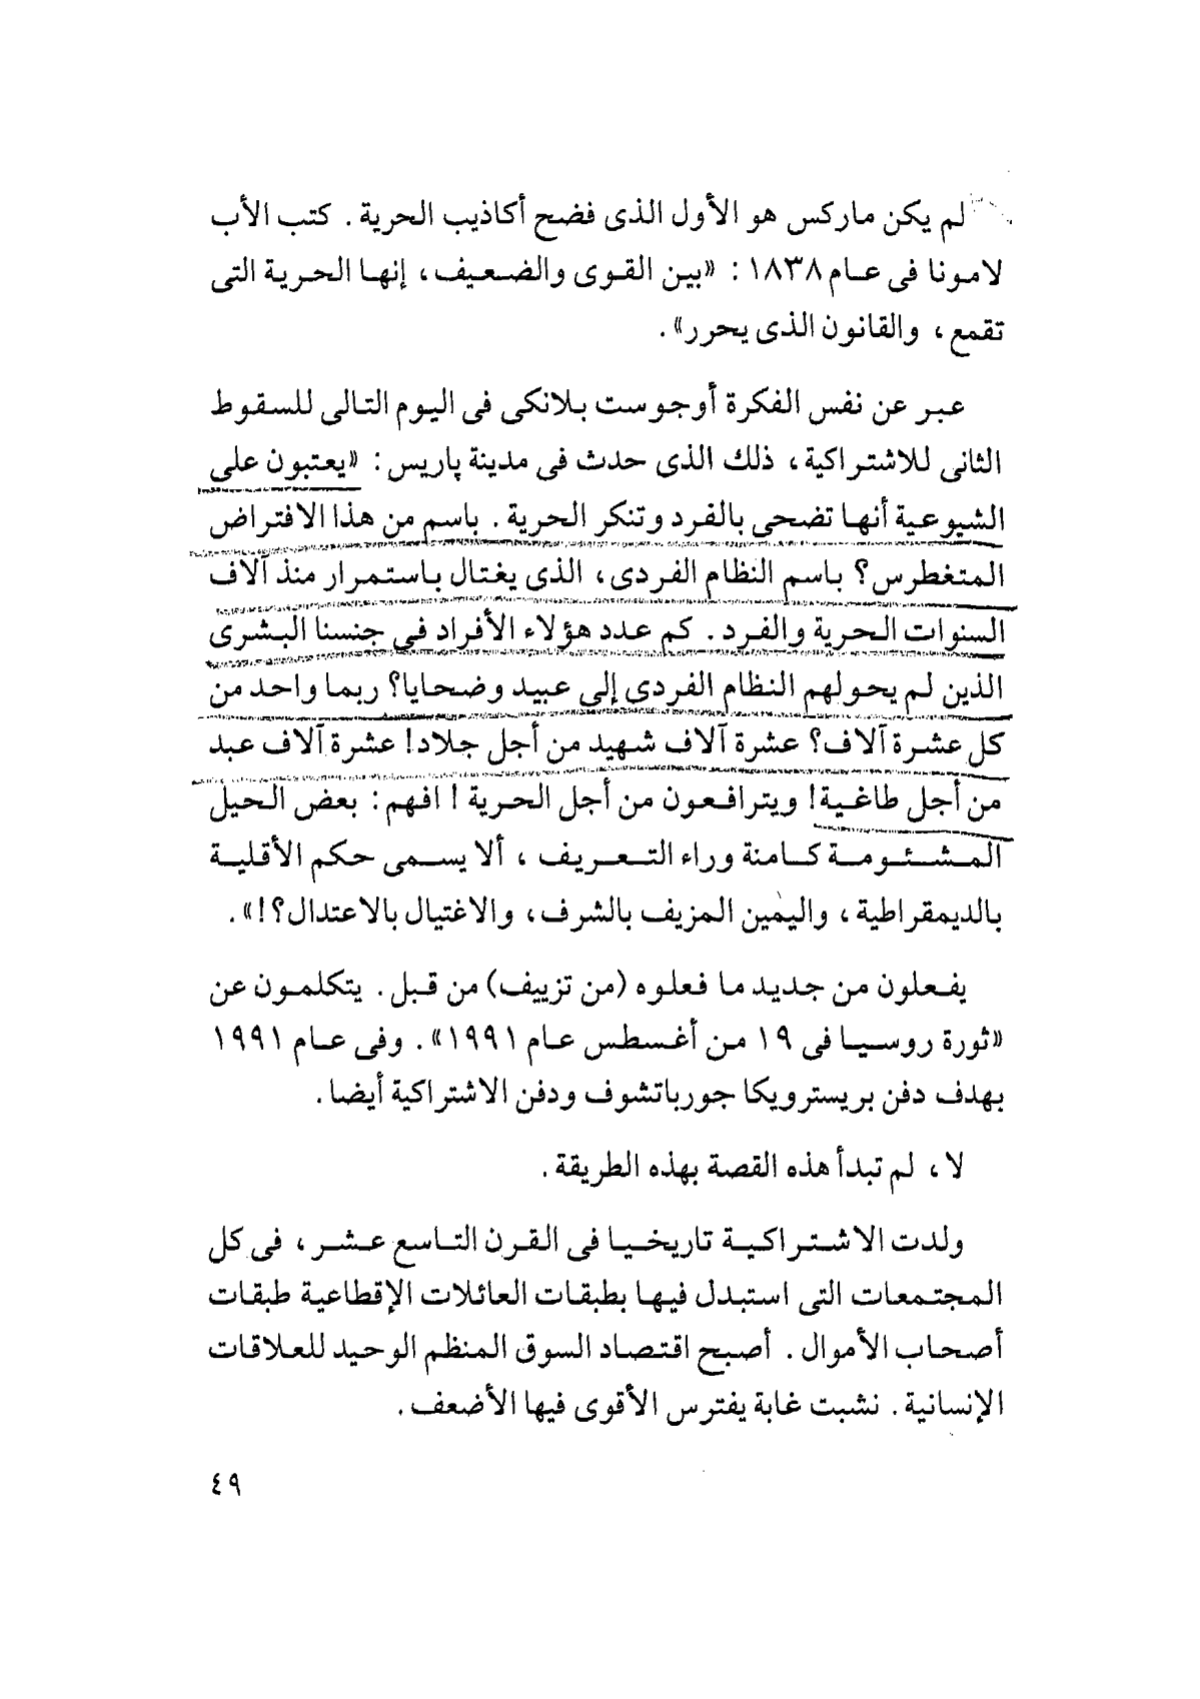 لم يكن ماركس هو الأول الذى فضح أكاذيب الحرية. كتب الأب
لامونا فى عام ١٨٣٨: «بين القوى والضعيف، إنها الحرية التى
تقمع، والقانون الذى يحرر».
عبر عن نفس الفكرة أوجوست بلانكى فى اليوم التالى للسقوط
الثانى للاشتراكية، ذلك الذى حدث فى مدينة پاريس: «يعتبون على
الشيوعية أنها تضحى بالفرد وتنكر الحرية. باسم من هذا الافتراض
المتغطرس؟ باسم النظام الفردى، الذى يغتال باستمرار منذ آلاف
السنوات الحرية والفرد. كم عدد هؤلاء الأفراد فى جنسنا البشرى
الذين لم يحولهم النظام الفردى إلى عبيد وضحايا؟ ربما واحد من
كل عشرة آلاف؟ عشرة آلاف شهيد من أجل جلاد! عشرة آلاف عبد
من أجل طاغية! ويترافعون من أجل الحرية ! افهم: بعض الحيل
المشئومة كامنة وراء التعريف، ألا يسمى حكم الأقلية
بالديمقراطية، واليمين المزيف بالشرف، والاغتيال بالاعتدال؟!».
يفعلون من جديد ما فعلوه (من تزييف) من قبل. يتكلمون عن
«ثورة روسيا فى ١٩ من أغسطس عام ١٩٩١». وفى عام ١٩٩١
بهدف دفن بريسترويكا جورباتشوف ودفن الاشتراكية أيضا.
لا، لم تبدأ هذه القصة بهذه الطريقة.
ولدت الاشتراكية تاريخيا فى القرن التاسع عشر، فى كل
المجتمعات التى استبدل فيها بطبقات العائلات الإقطاعية طبقات
أصحاب الأموال. أصبح اقتصاد السوق المنظم الوحيد للعلاقات
الإنسانية. نشبت غابة يفترس الأقوى فيها الأضعف.
٤٩